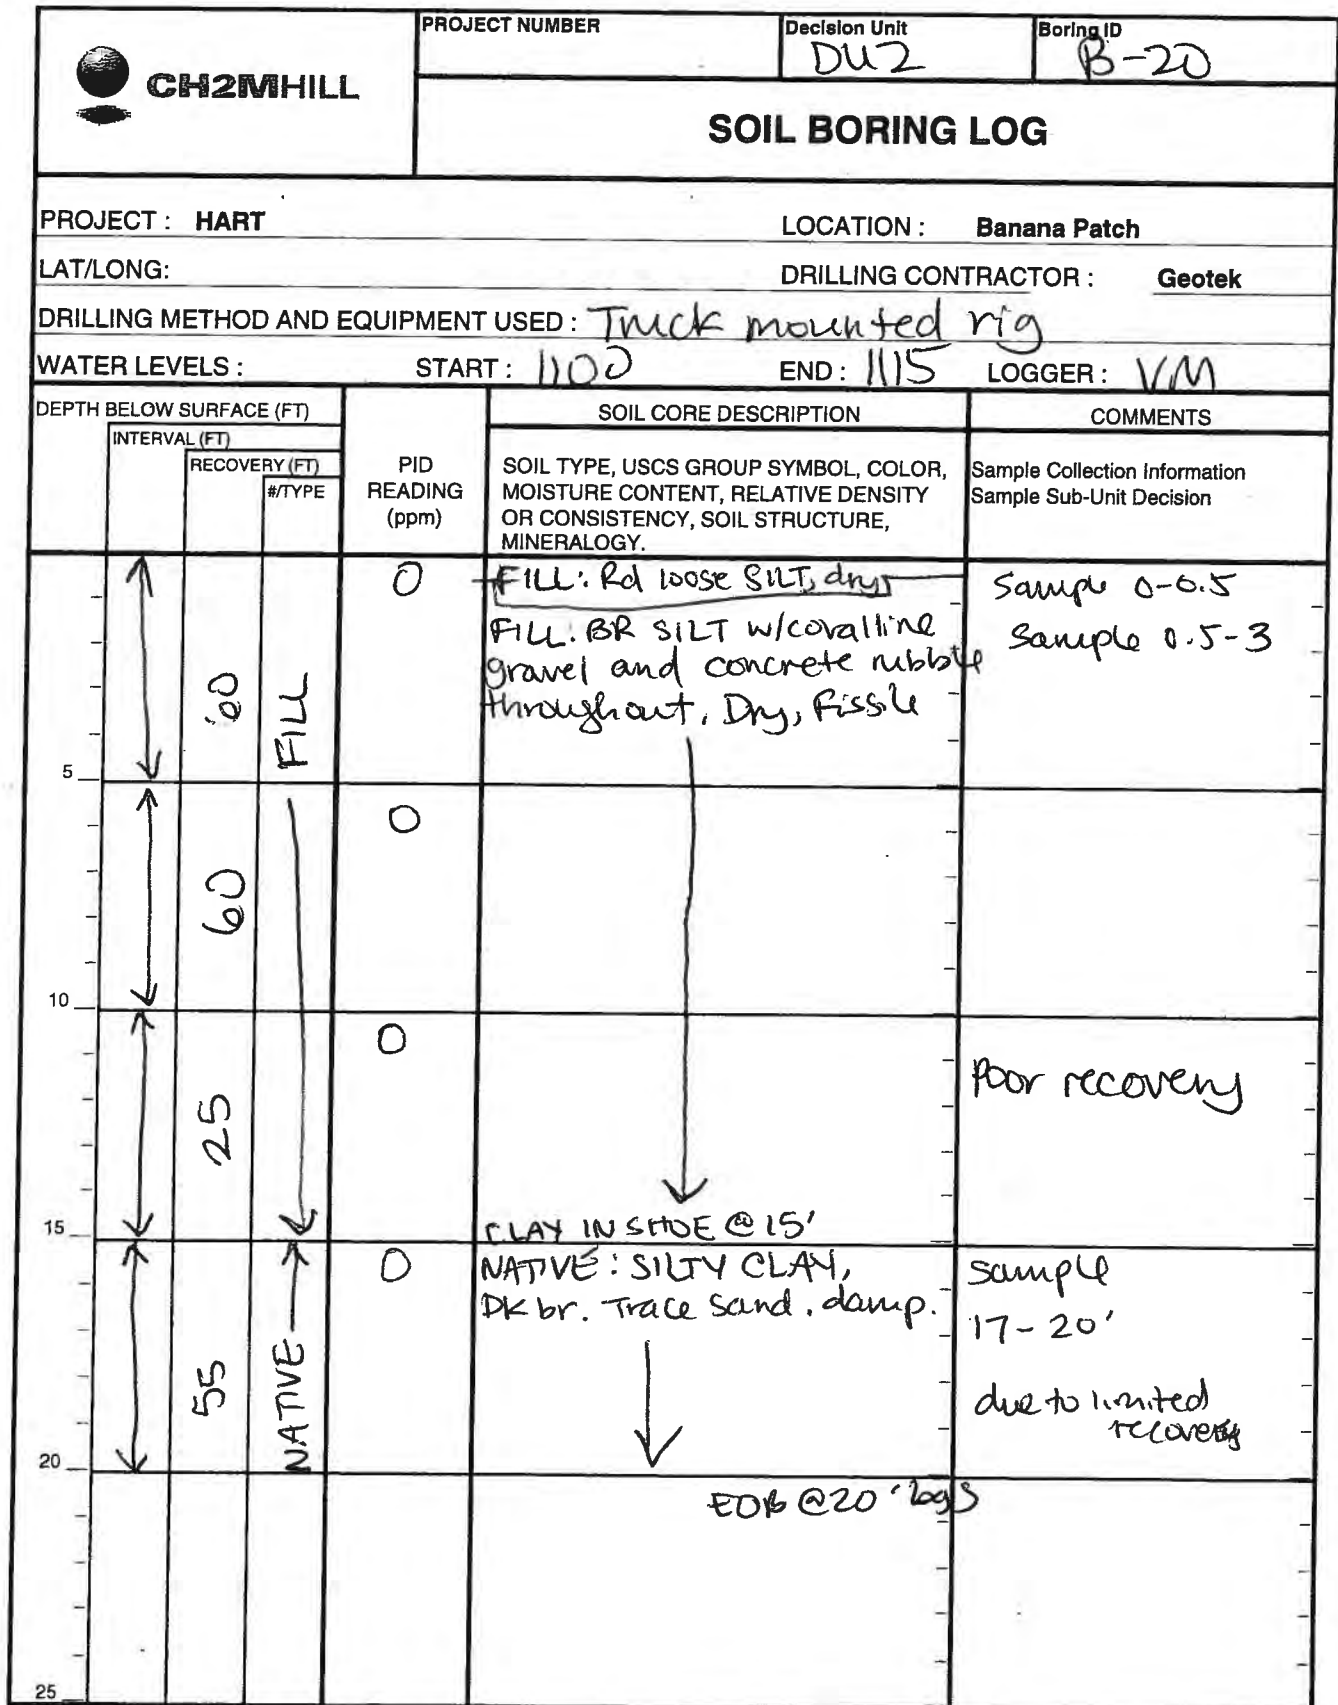 CH2MHILL
PROJECT NUMBER
Decision Unit
DU2
Boring ID
B-20
SOIL BORING LOG
PROJECT : HART
LOCATION : Banana Patch
LAT/LONG:
DRILLING CONTRACTOR : Geotek
DRILLING METHOD AND EQUIPMENT USED : Truck mounted rig
WATER LEVELS : START : 1100 END : 1115 LOGGER : VM
DEPTH BELOW SURFACE (FT)
INTERVAL (FT)
RECOVERY (FT)
#/TYPE
PID
READING
(ppm)
SOIL CORE DESCRIPTION
SOIL TYPE, USCS GROUP SYMBOL, COLOR,
MOISTURE CONTENT, RELATIVE DENSITY
OR CONSISTENCY, SOIL STRUCTURE,
MINERALOGY.
COMMENTS
Sample Collection Information
Sample Sub-Unit Decision
0
FILL: Rd loose SILT, dry
Sample 0-0.5
FILL: BR SILT w/coralline
Sample 0.5-3
gravel and concrete rubble
throughout. Dry, Fissile
60
FILL
5
0
60
10
0
Poor recovery
25
CLAY IN SHOE @ 15'
15
0
NATIVE: SILTY CLAY,
DK br. Trace sand. damp.
sample
17-20'
55
NATIVE
due to limited
recovery
20
EOB @20' bgs
25